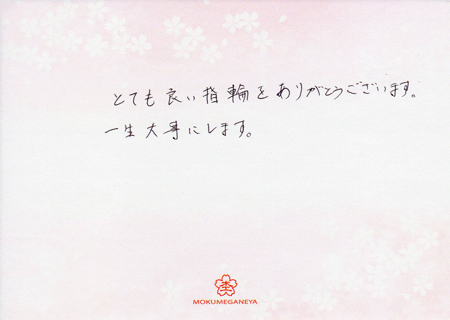 とても良い指輪をありがとうございます。
一生大事にします。
MOKUMEGANEYA